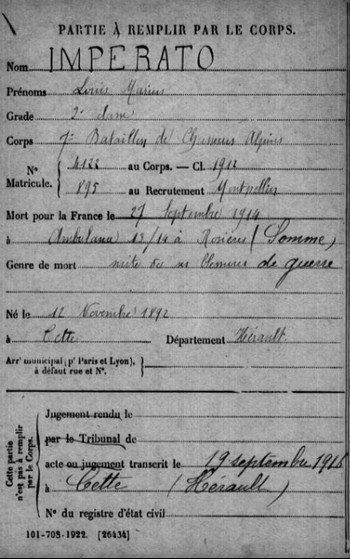 PARTIE À REMPLIR PAR LE CORPS.
Nom IMPERATO
Prénoms Louis Marius
Grade 2e classe
Corps 7e Bataillon de Chasseurs Alpins
N° Matricule. { 4122 au Corps. — Cl. 1912
895 au Recrutement Montpellier
Mort pour la France le 27 Septembre 1914
à Ambulance 13/14 à Rosières (Somme)
Genre de mort suite de ses blessures de guerre
Né le 12 Novembre 1892
à Cette Département Hérault
Arrt municipal (pr Paris et Lyon), à défaut rue et N°. }
Cette partie n'est pas à remplir par le Corps.
Jugement rendu le
par le Tribunal de
acte ou jugement transcrit le 19 septembre 1916
à Cette (Hérault)
N° du registre d'état civil
101-708-1922. [26434]